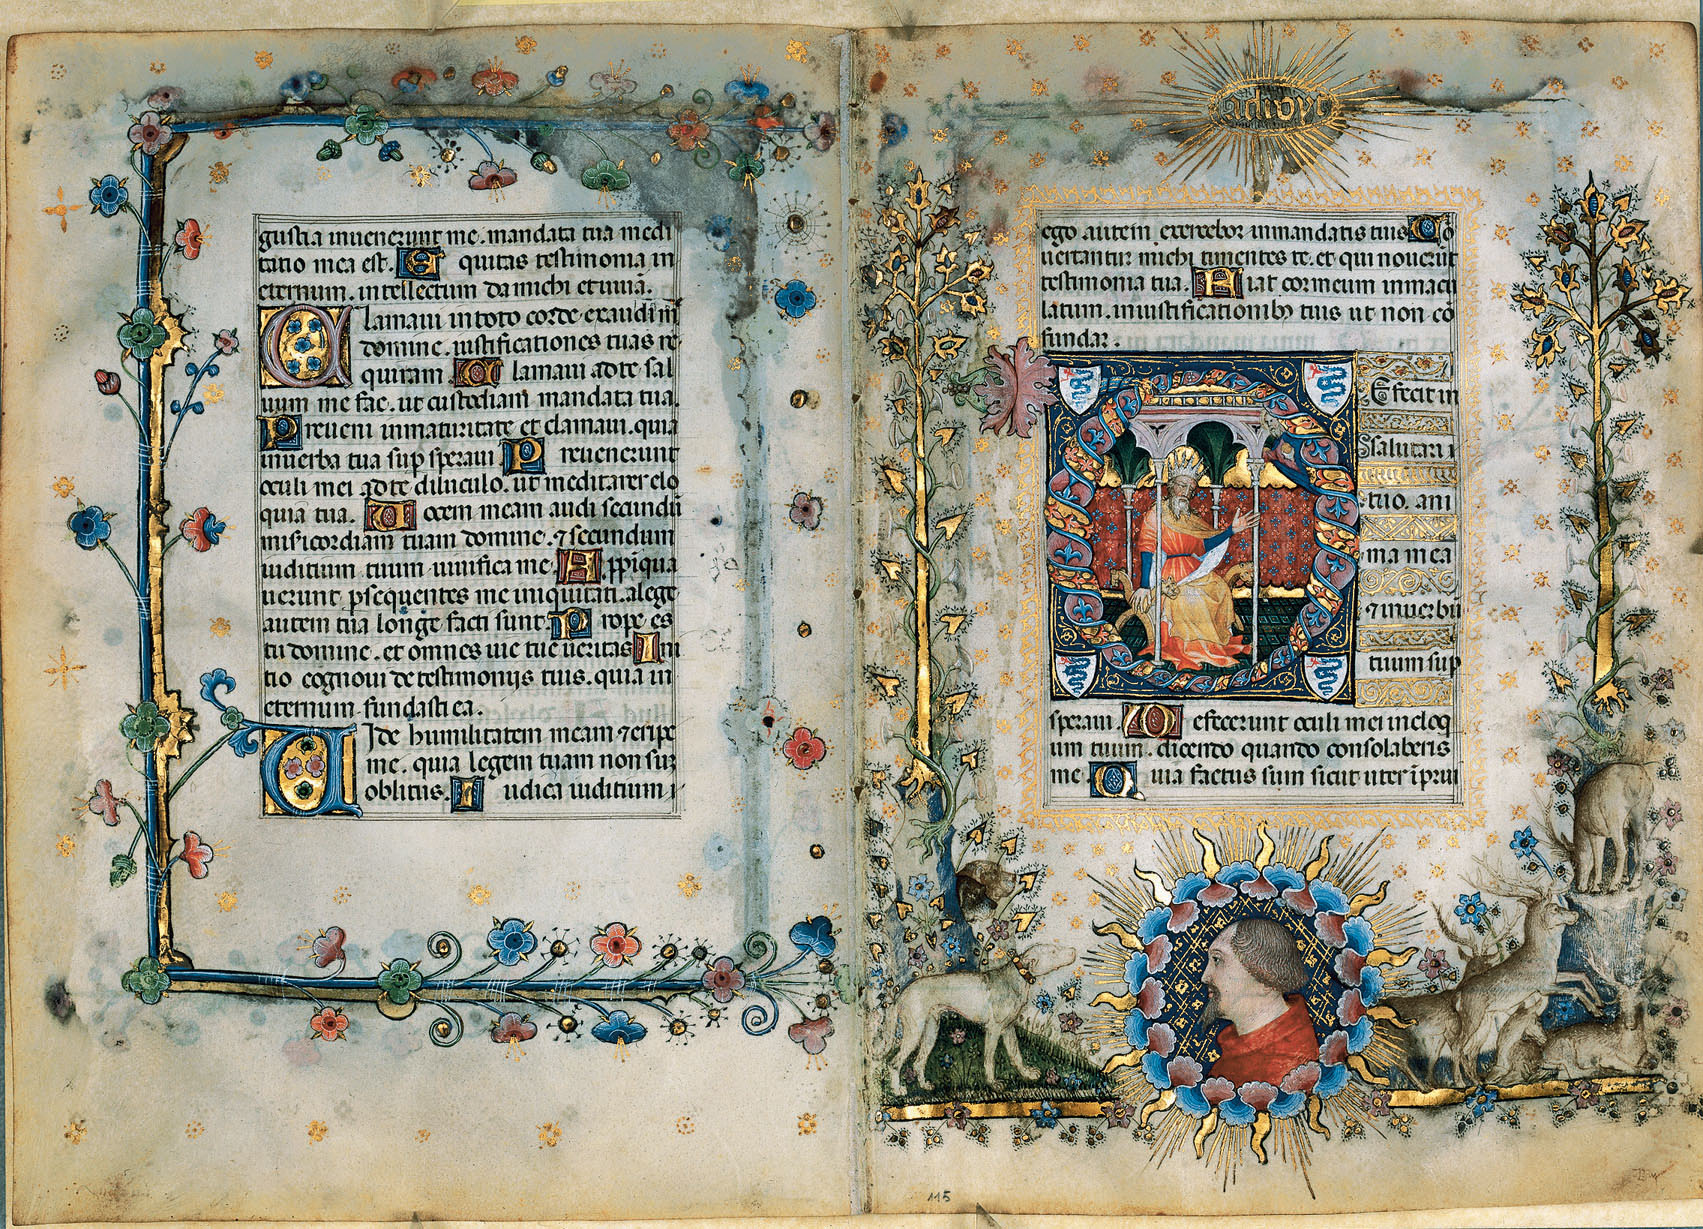 gustia inuenerunt me. mandata tua medi
tatio mea est. Equitas testimonia in
eternum. intellectum da michi et uiuã.
Clamaui in toto corde exaudi m
domine. iustificationes tuas re
quiram. Clamaui ad te sal
uum me fac. ut custodiam mandata tua.
Preueni inmaturitate et clamaui. quia
inuerba tua sup speraui Preuenerunt
oculi mei ad te diluculo. ut meditarer elo
quia tua. Uocem meam audi secundũ
misicordiam tuam domine. ⁊ secundum
iuditium tuum uiuifica me. Appiqua
uerunt psequentes me iniquitati. a lege
autem tua longe facti sunt. Prope es
tu domine. et omnes uie tue ueritas Ini
tio cognoui de testimonijs tuis. quia in
eternum fundasti ea.
Uide humilitatem meam ⁊ eripe
me. quia legem tuam non suz
oblitus. Iudica iuditium
ego autem exercebor inmandatis tuis Cõ
uertantur michi timentes te. et qui nouerũt
testimonia tua. Fiat cor meum inmacu
latum. iniustificationibȝ tuis ut non cõ
fundar.
Defecit in
salutari
tuo. ani
ma mea
⁊ inuerbũ
tuum sup
speraui. Defecerunt oculi mei ineloq
um tuum. dicendo quando consolaberis
me. Quia factus sum sicut uter ĩ prui
115